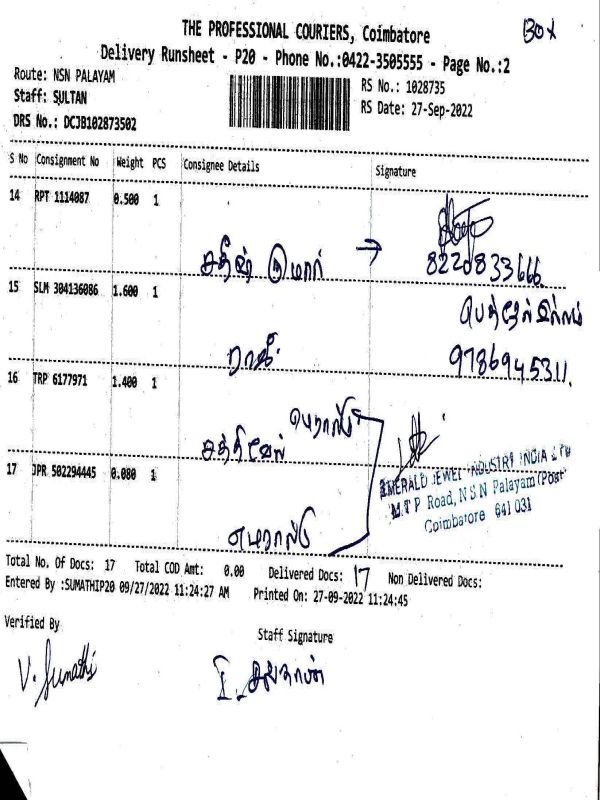 THE PROFESSIONAL COURIERS, Coimbatore
BOX
Delivery Runsheet - P20 - Phone No.:0422-3505555 - Page No.:2
Route: NSN PALAYAM
RS No.: 1028735
Staff: SULTAN
RS Date: 27-Sep-2022
DRS No.: DCJB102873502
S No Consignment No Weight PCS Consignee Details Signature
14 RPT 1114087 0.500 1
சதீஷ் குமார் →
8220833666
15 SLM 304136086 1.600 1
ராஜீ
9786945311
16 TRP 6177971 1.400 1
சக்திவேல்
EMERALD JEWEL INDUSTRY INDIA LTD
M.T P Road, N.S.N Palayam (Post)
Coimbatore 641 031
17 JPR 502294445 0.080 1
எமரால்டு
Total No. Of Docs: 17 Total COD Amt: 0.00 Delivered Docs: 17 Non Delivered Docs:
Entered By :SUMATHIP20 09/27/2022 11:24:27 AM Printed On: 27-09-2022 11:24:45
Verified By
Staff Signature
V. Sumathi